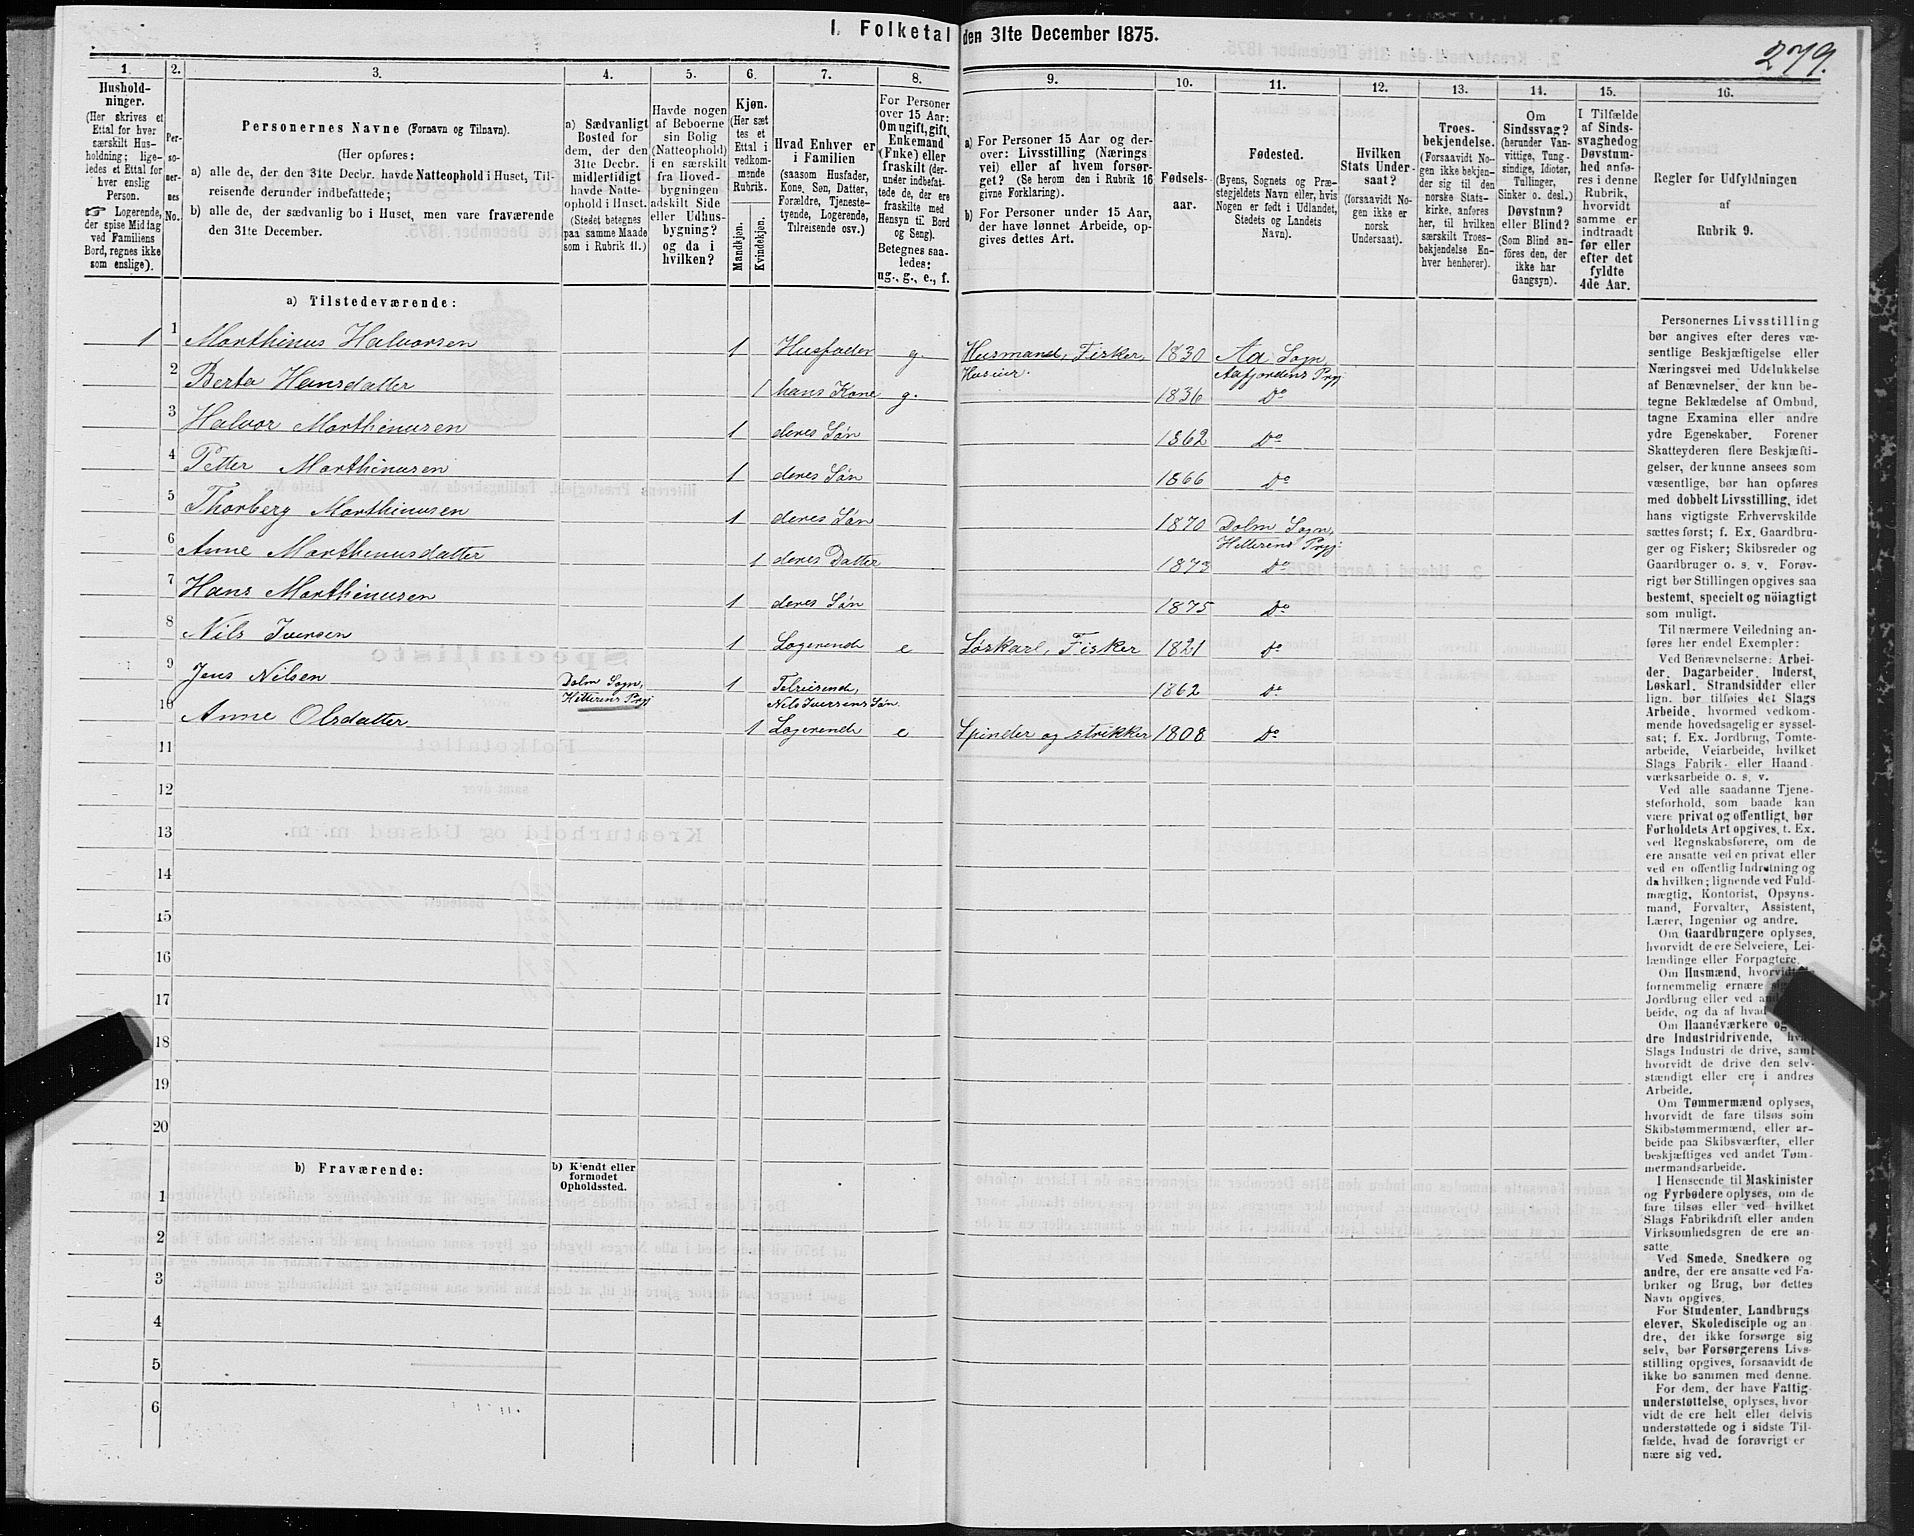 I. Folketal den 31te December 1875.
279.
1. 2. 3. 4. 5. 6. 7. 8. 9. 10. 11. 12. 13. 14. 15. 16.
Hushold-
ninger.
(Her skrives et
Ettal for hver
særskilt Hus-
holdning; lige-
ledes et Ettal for
hver enslig
Person.
☞ Logerende,
der spise Midtag
ved Familiens
Bord, regnes ikke
som enslige).
Per-
so-
ner-
nes
No.
Personernes Navne (Fornavn og Tilnavn).
(Her opføres:
a) alle de, der den 31te Decbr. havde Natteophold i Huset, Til-
reisende derunder indbefattede;
b) alle de, der sædvanlig bo i Huset, men vare fraværende
den 31te December.
a) Sædvanligt
Bosted for
dem, der den
31te Decbr.
midlertidigt
havde Natte-
ophold i Huset.
(Stedet betegnes
paa samme Maade
som i Rubrik 11.)
Havde nogen
af Beboerne
sin Bolig
(Natteophold)
i en særskilt
fra Hoved-
bygningen
adskilt Side
eller Udhus-
bygning?
og da i
hvilken?
Kjøn.
(Her sæt
tes et
Ettal i
vedkom-
mende
Rubrik.
Mandkjøn.
Kvindekjøn.
Hvad Enhver er
i Familien
(saasom Husfader,
Kone, Søn, Datter,
Forældre, Tjeneste-
tyende, Logerende,
Tilreisende osv.)
For Personer
over 15 Aar:
Om ugift, gift,
Enkemand
(Enke) eller
fraskilt (der-
under indbefat-
tede de, der ere
fraskilte med
Hensyn til Bord
og Seng).
Betegnes saa-
ledes:
ug., g., e., f.
a) For Personer 15 Aar og der-
over: Livsstilling (Nærings
vei) eller af hvem forsør-
get? (Se herom den i Rubrik 16
givne Forklaring).
b) For Personer under 15 Aar,
der have lønnet Arbeide, op-
gives dettes Art.
Fødsels-
aar.
Fødested.
(Byens, Sognets og Præ-
stegjeldets Navn eller, hvis
Nogen er født i Udlandet,
Stedets og Landets
Navn).
Hvilken
Stats Under-
saat?
(forsaavidt No-
gen ikke er
norsk
Undersaat).
Troes-
bekjendelse.
(Forsaavidt No-
gen ikke bekjen-
der sig til den
norske Stats-
kirke, anføres
her, til hvilken
særskilt Troes-
bekjendelse En-
hver henhører).
Om
Sindssvag?
(herunder Van-
vittige, Tung-
sindige, Idioter,
Tullinger,
Sinker o. desl.)
Døvstum?
eller Blind?
(Som Blind an-
føres den, der
ikke har
Gangsyn).
I Tilfælde
af Sinds-
svaghed og
Døvstum-
hed anfø-
res i denne
Rubrik,
hvorvidt
samme er
indtraadt
før eller
efter det
fyldte
4de Aar.
Regler for Udfyldningen
af
Rubrik 9.
a) Tilstedeværende:
1 1 Morthinus Halvorsen 1 Husfader g. Husmand, Fisker, Huseier. 1830 Aa Sogn, Aafjordens Prgj
2 Berta Hansdatter 1 hans Kone g. 1836 Do
3 Halvor Morthinusen 1 deres Søn 1862 Do
4 Petter Morthinusen 1 deres Søn 1866 Do
5 Thorberg Morthinusen 1 deres Søn 1870 Dolm Sogn, Hitterens Prgj:
6 Anne Morthinusdatter 1 deres Datter 1873 Do
7 Hans Morthinusen 1 deres Søn 1875 Do
8 Nils Iversen 1 Logerende e Løskarl, Fisker 1821 Do
9 Jens Nilsen Dolm Sogn, Hitterens Prgj 1 Tilreisende, Nils Iversens Søn. 1862 Do
10 Anne Olsdatter 1 Logerende e Spinder og strikker 1808 Do
11
12
13
14
15
16
17
18
19
20
b) Fraværende:
b) Kjendt eller
formodet
Opholdssted.
1
2
3
4
5
6
Personernes Livsstilling
bør angives efter deres væ-
sentlige Beskjæftigelse eller
Næringsvei med Udelukkelse
af Benævnelser, der kun be-
tegne Beklædelse af Ombud,
tagne Examina eller andre
ydre Egenskaber. Forener
Skatteyderen flere Beskjæfti-
gelser, der kunne ansees som
væsentlige, bør han opføres
med dobbelt Livsstilling, idet
hans vigtigste Erhvervskilde
sættes først; f. Ex. Gaardbru-
ger og Fisker; Skibsreder og
Gaardbruger o. s. v. Forøv-
rigt bør Stillingen opgives saa
bestemt, specielt og nöiagtigt
som muligt.
Til nærmere Veiledning an-
føres her endel Exempler:
Ved Benævnelserne: Arbei-
der, Dagarbeider, Inderst,
Løskarl, Strandsidder eller
lign. bør tilføies det Slags
Arbeide, hvormed vedkom-
mende hovedsagelig er syssel-
sat; f. Ex. Jordbrug, Tomte-
arbeide, Veiarbeide, hvilket
Slags Fabrik- eller Haand
værksarbeide o. s. v.
Ved alle saadanne Tjene-
steforhold, som baade kan
være privat og offentligt, bør
Forholdets Art opgives, t. Ex.
ved Regnskabsførere, om de
ere ansatte ved en privat eller
ved en offentlig Indretning og
da hvilken; lignende ved Fuld-
mægtig, Kontorist, Opsyns-
mand, Forvalter, Assistent,
Lærer, Ingeniør og andre.
Om Gaardbrugere oplyses,
hvorvidt de ere Selveiere, Lei-
lændinge eller Forpagtere.
Om Husmænd, hvorvidt
fornemmelig ernære
Jordbrug eller ved
beide, og da af hvad
Om Haandværkere og
dre Industridrivende,
Slags Industri de drive, samt
hvorvidt de drive den selv-
stændigt eller ere i andres
Arbeide.
Om Tømmermænd oplyses,
hvorvidt de fare tilsøs som
Skibstømmermænd, eller ar-
beide paa Skibsværfter, eller
beskjæftiges ved andet Tøm-
mermandsarbeide.
I Henseende til Maskinister
og Fyrbødere oplyses, om de
fare tilsøs eller ved hvilket
Slags Fabrikdrift eller anden
Virksomhedsgren de ere an-
satte
Ved Smede, Snedkere og
andre, der ere ansatte ved Fa-
briker og Brug, bør dettes
Navn opgives.
For Studenter, Landbrugs
elever, Skoledisciple og an
dre, der ikke forsørge sig
selv, bør Forsørgerens Livs-
stilling opgives, forsaavidt de
ikke bo sammen med denne.
For dem, der have Fattig-
understøttelse, oplyses, hvor-
vidt de ere helt eller delvis
understøttede og i sidste Til-
fælde, hvad de forøvrigt er
nære sig ved.